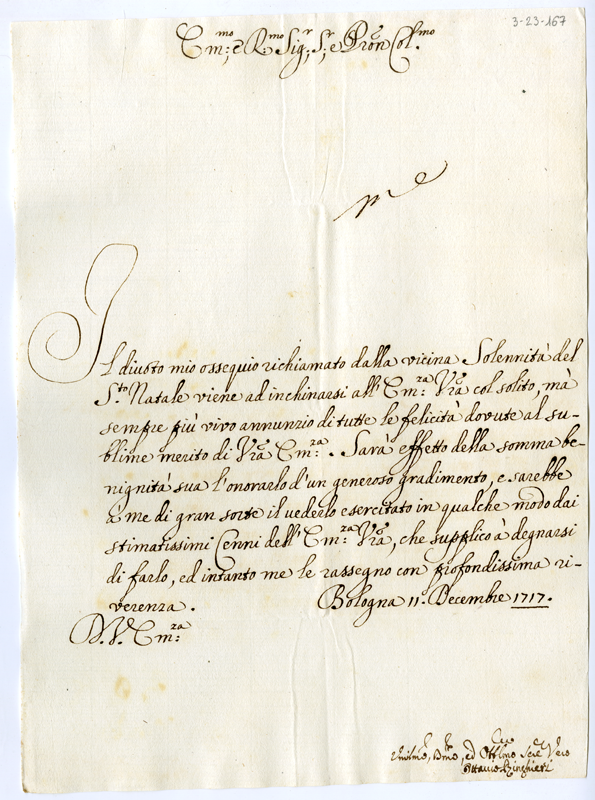 3-23-167
Em:mo e R.mo Sig.r, S.r e Pron Col.mo
Il diuoto mio ossequio richiamato dalla vicina Solennità del
S.to Natale viene ad inchinarsi all'Em:ra Vrã col solito, mà
sempre più vivo annunzio di tutte le felicità dovute al su-
blime merito di Vrã Em:ra. Sarà effetto della somma be-
nignità sua l'onorarlo d'un generoso gradimento, e sarebbe
à me di gran sorte il vederlo esercitato in qualche modo dai
stimatissimi Cenni dell'Em:ra Vrã, che supplico à degnarsi
di farlo, ed intanto me le rassegno con profondissima ri-
verenza. Bologna 11. Decembre 1717.
D. V. Em:ra
Vmilmo, ed Obblmo Serre Vero
Ottavio